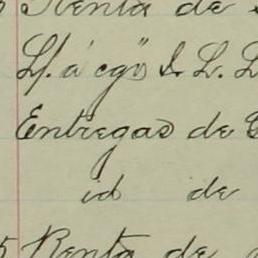 Renta de
Ll. á cgo de L. L
Entregas de
id de
Renta de